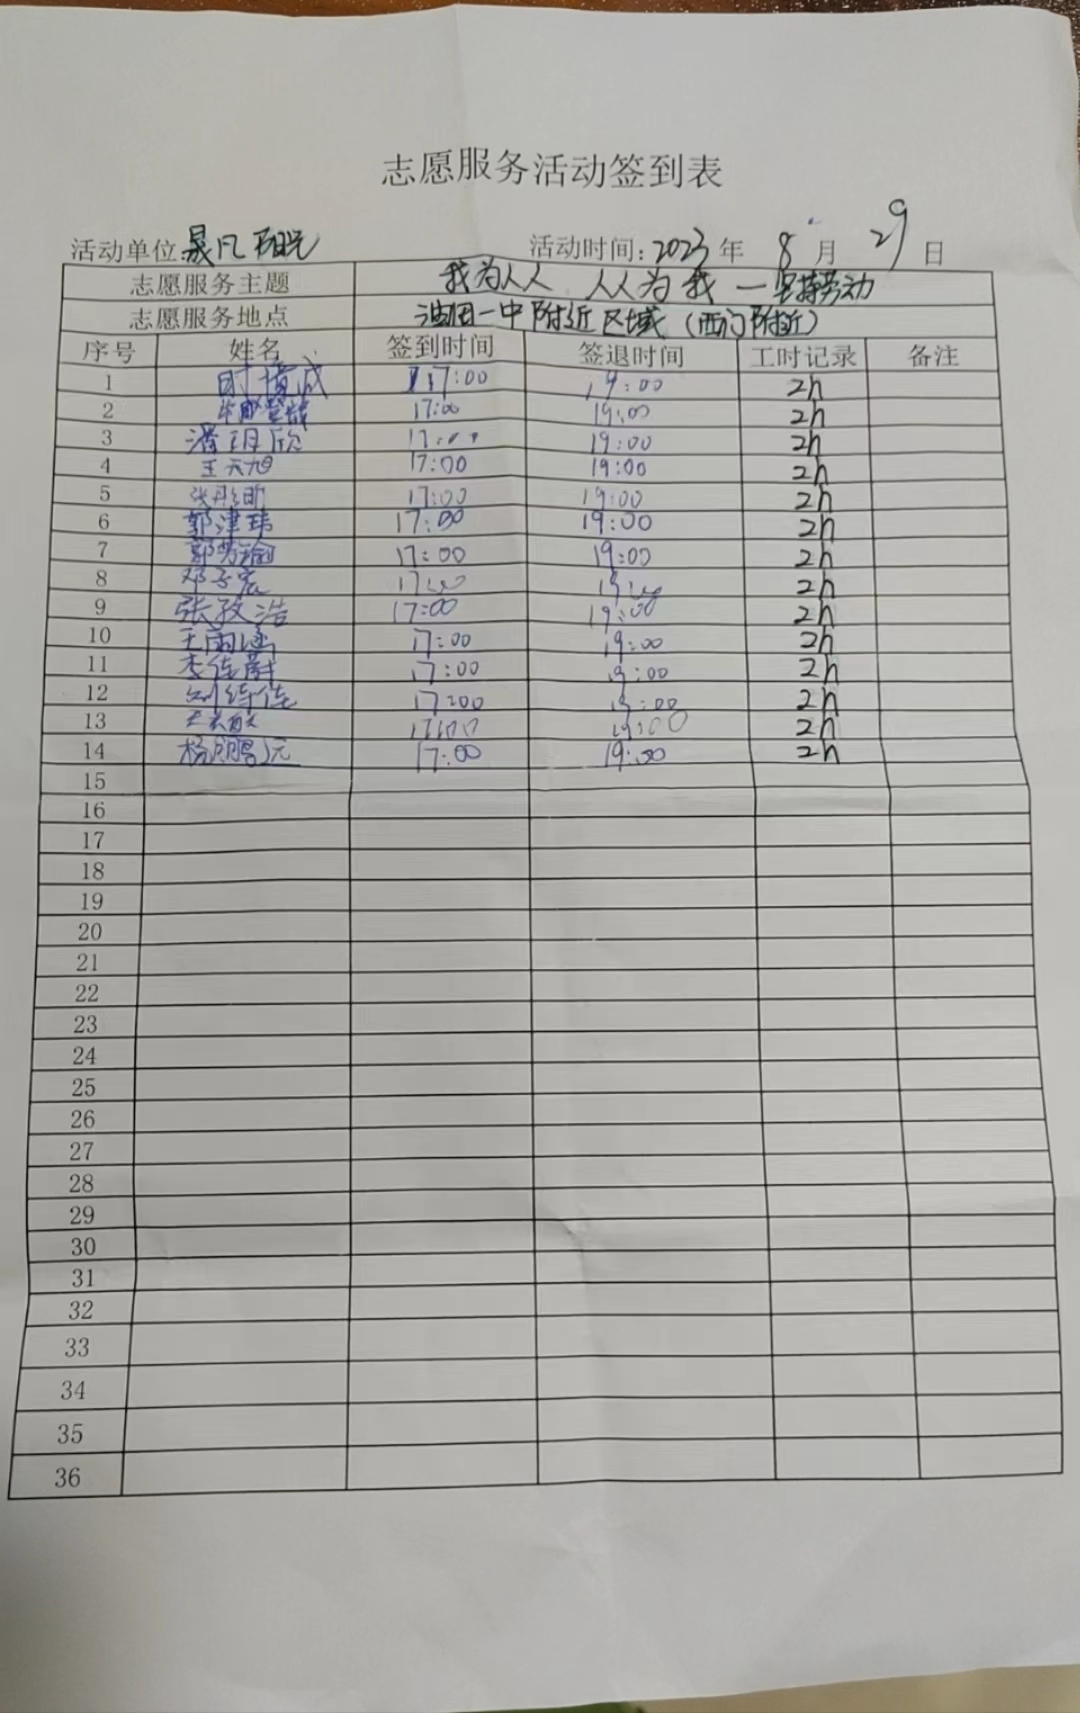 志愿服务活动签到表
活动单位 晟凡阳光 活动时间:2023年 8月 29日
志愿服务主题 我为人人 人人为我 — 坚持劳动
志愿服务地点 油田一中附近区域(西门附近)
序号 姓名 签到时间 签退时间 工时记录 备注
1 17:00 19:00 2h
2 17:00 19:00 2h
3 潘玥欣 17:00 19:00 2h
4 王天旭 17:00 19:00 2h
5 张彤昕 17:00 19:00 2h
6 郭津玮 17:00 19:00 2h
7 17:00 19:00 2h
8 邓子宸 17:00 19:00 2h
9 张孜浩 17:00 19:00 2h
10 王雨涵 17:00 19:00 2h
11 李佳蔚 17:00 19:00 2h
12 17:00 19:00 2h
13 17:00 19:00 2h
14 杨鹏元 17:00 19:00 2h
15
16
17
18
19
20
21
22
23
24
25
26
27
28
29
30
31
32
33
34
35
36